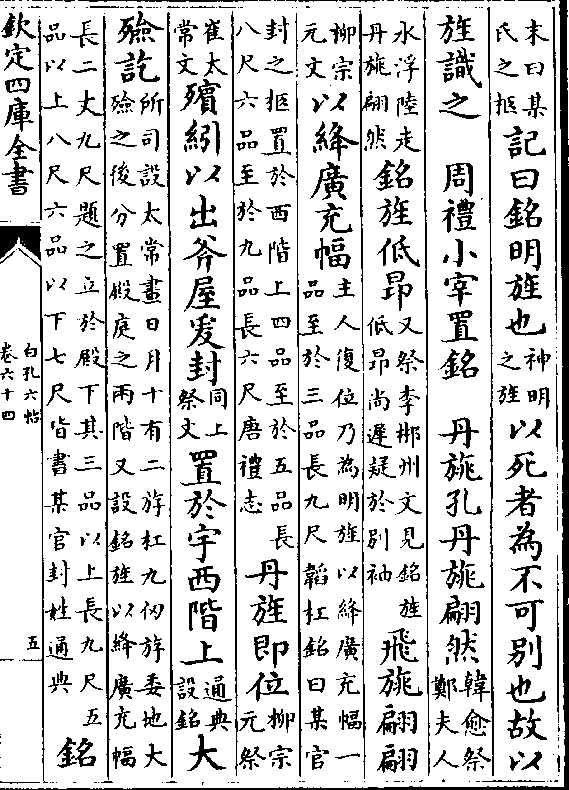 末曰某氏之柩記曰銘明旌也神明之旌以死者為不可别也故以
旌識之　周禮小宰置銘　丹旐孔丹旐翩然韓愈祭鄭夫人
水浮陸走丹旐翩然銘旌低昂又祭李郴州文見銘旌低昂尚遲疑於别袖飛旐翩翩
柳宗元文以絳廣充幅主人復位乃為明旌以絳廣充幅一品至於三品長九尺韜杠銘曰某官
封之柩置於西階上四品至於五品長八尺六品至於九品長六尺唐禮志丹旌即位柳宗元祭
崔太常文殯紖以出斧屋爰封同上祭文置於宇西階上通典設銘大
殮訖所司設太常畫日月十有二斿杠九仞斿委地大殮之後分置殿庭之兩階又設銘旌以絳廣充幅
長二丈九尺題之立於殿下其三品以上長九尺五品以上八尺六品以下七尺皆書某官封姓通典銘
欽定四庫全書
白孔六帖
卷六十四
五